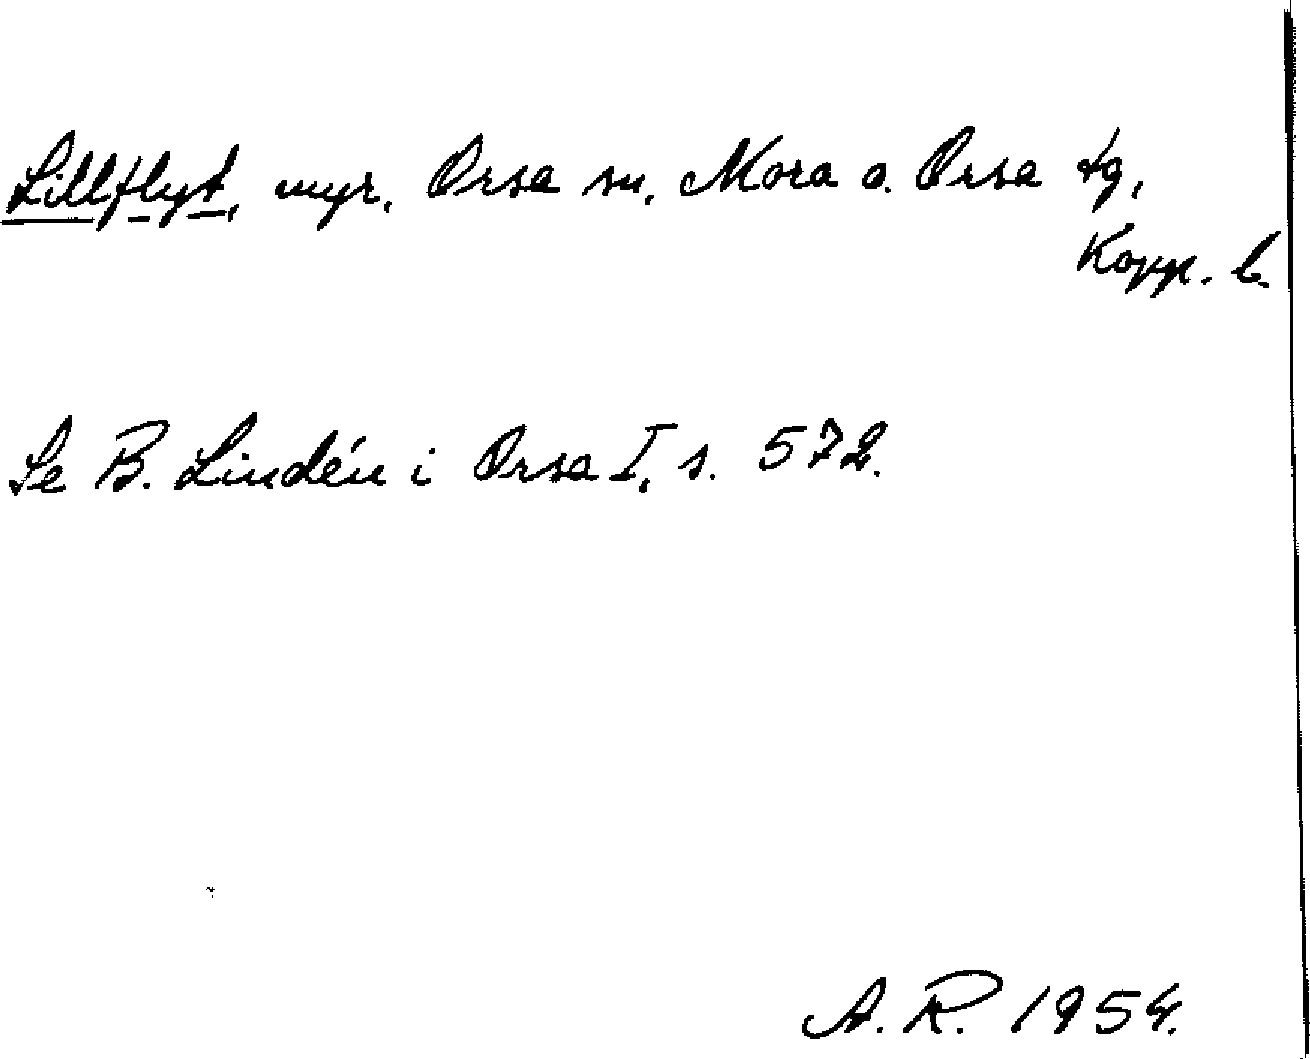 Lillflyt, myr, Orsa sn, Mora o. Orsa tg,
Kopp. l.
Se B. Lindén i Orsa I, s. 572.
A. R. 1954.